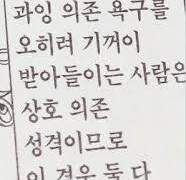 과잉 의존 욕구를
오히려 기꺼이
받아들이는 사람은
상호 의존
성격이므로
이 경우 둘 다